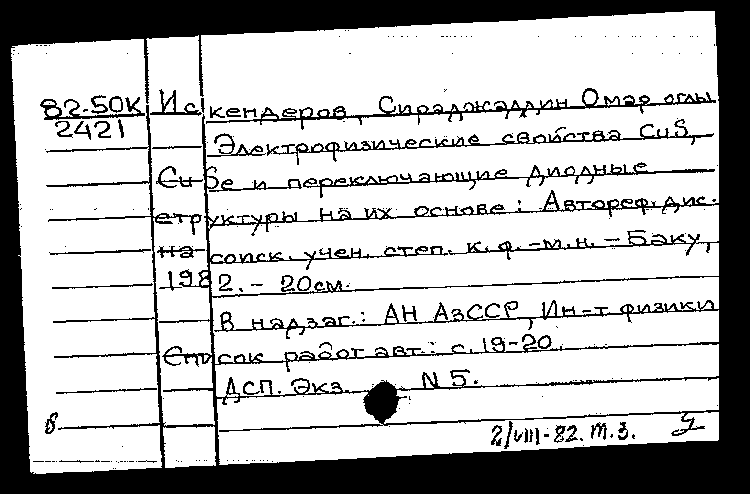 82-50К Искендеров, Сираджаддин Омар оглы
2421
Электрофизические свойства CuS,
CuSe и переключающие диодные
структуры на их основе: Автореф. дис.
на соиск. учен. степ. к. ф.-м.н. – Баку,
1982. – 20см.
В надзаг.: АН АзССР, Ин-т физики
Список работ авт.: с. 19-20.
ДСП. Экз. N 5.
2/VIII-82. т.з.